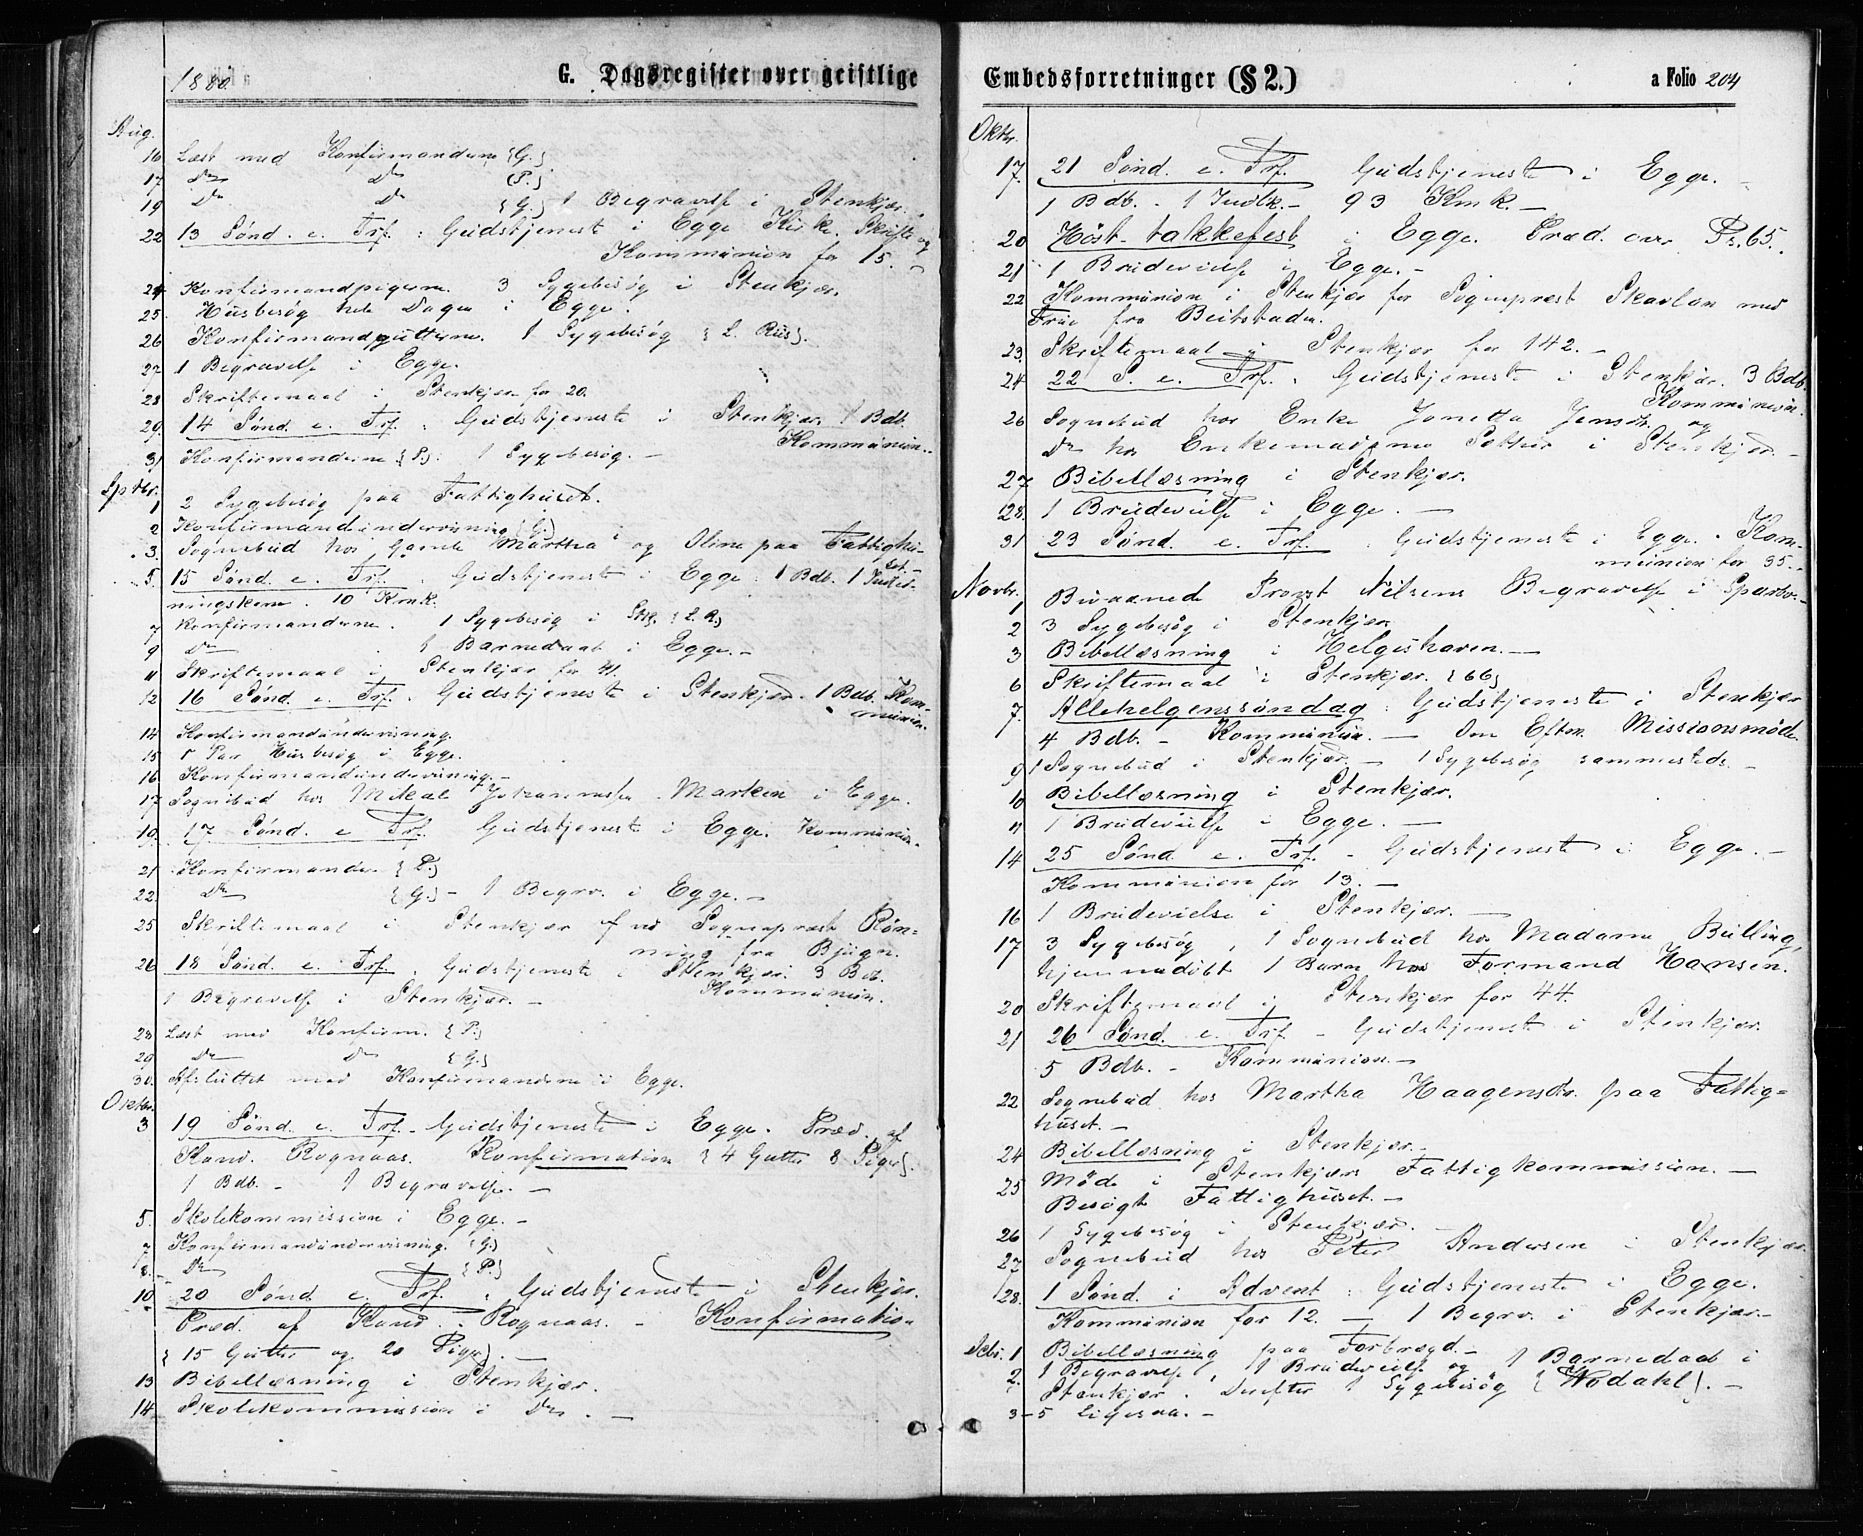 1880
G. Dagsregister over geistlige
Aug.
16 Læst med Konfirmanderne {G.}
17 Do Do {P.}
19 Do Do {G.} 1 Begravelse i Stenkjær.
22 13 Sønd. e. Trf. Gudstjeneste i Egge Kirke. Skrifte og
Kommunion for 15.
24 Konfirmandpigerne. 3 Sygebesøg i Stenkjær.
25. Husbesøg hele Dagen i Egge.
26 Konfirmandgutterne. 1 Sygebesøg {L. Riis}.
27 1 Begravelse i Egge.
28 Skriftemaal i Stenkjær for 20.
29. 14 Sønd. e. Trf. Gudstjeneste i Stenkjær. 1 Bdb.
Kommunion.
31 Konfirmanderne {P.}. 1 Sygebesøg. —
Septbr.
1 2 Sygebesøg paa Fattighuset.
2 Konfirmandundervisning {G.}
3. Sognebud hos Gamle Martha og Oline paa Fattighu-
set. —
5. 15 Sønd. e. Trf. Gudstjeneste i Egge. 1 Bdb. 1 Indled-
ningskone. 10 Kmk.
7 Konfirmanderne. 1 Sygebesøg i Stkj. {L. R.}
9 Do 1 Barnedaab i Egge. —
11 Skriftemaal i Stenkjær for 41.
12 16 Sønd. e. Trf. Gudstjeneste i Stenkjær. 1 Bdb. Kom-
munion.
14 Konfirmandundervisning.
15 Par Husbesøg i Egge.
16. Konfirmandundervisning. —
17 Sognebud hos Mikal Johannessen Marken i Egge.
19. 17. Sønd. e. Trf. Gudstjeneste i Egge. Kommunion.
21 Konfirmander {P.}
22. Do {G.} — 1 Begrv. i Egge. —
25 Skriftemaal i Stenkjær ved Sogneprest Røn-
ning fra Bjugn.
26 18 Sønd. e. Trf. Gudstjeneste i Stenkjær. 3 Bdb.
Kommunion.
1 Begravelse i Stenkjær. —
28 Læst med Konfirm. {P.}
29 Do Do {G.}
30. Afsluttet med Konfirmanderne i Egge.
Oktbr.
3 19 Sønd. e. Trf. Gudstjeneste i Egge. Præd. af
Kand. Rognaas. Konfirmation {4 Gutter 8 Piger}.
1 Bdb. — 1 Begravelse. —
5. Skolekommission i Egge. —
7 Konfirmandundervisning. {G.}
8. Do {P.}
10 20 Sønd. e. Trf. Gudstjeneste i Stenkjær.
Præd. af Kand. Rognaas. — Konfirmation
{15 Gutter og 20 Piger}. —
13 Bibellæsning i Stenkjær.
14. Skolekommission i Do. —
Embedsforretninger (§ 2.)
a Folio 204
Oktbr.
17. 21 Sønd. e. Trf. Gudstjeneste i Egge. —
1 Bdb. — 1 Indlk. — 93 Kmk. —
20 Høst-takkefest i Egge. Præd. over Ps. 65.
21 1 Brudevielse i Egge. —
22 Kommunion i Stenkjær for Sogneprest Skavlan med
Frue fra Beitstaden.
23. Skriftemaal i Stenkjær for 142. —
24 22 S. e. Trf. Gudstjeneste i Stenkjær. 3 Bdb.
Kommunion.
26 Sognebud hos Enke Jonetta Jensdr. og
Do hos Enkemadame i Stenkjær. —
27 Bibellæsning i Stenkjær.
28. 1 Brudevielse i Egge. —
31 23 Sønd. e. Trf. Gudstjeneste i Egge. Kom-
munion for 35. —
Novbr.
1 Bivaanede Provst Nilsens Begravelse i Sparbo. —
2 3 Sygebesøg i Stenkjær.
3 Bibellæsning i Helgeshaven. —
6 Skriftemaal i Stenkjær. {66}
7. Allehelgenssøndag. Gudstjeneste i Stenkjær
4 Bdb. — Kommunion. — Om Efterm. Missionsmøde.
9 1 Sognebud i Stenkjær. — 1 Sygebesøg sammesteds. —
10 Bibellæsning i Stenkjær.
11 1 Brudevielse i Egge. —
14 25 Sønd. e. Trf. — Gudstjeneste i Egge. —
Kommunion for 13. —
16 1 Brudevielse i Stenkjær. —
17 3 Sygebesøg, 1 Sognebud hos Madame Bülling,
hjemmedøbt 1 Barn hos Formand Hansen.
20 Skriftemaal i Stenkjær for 44.
21 26 Sønd. e. Trf. — Gudstjeneste i Stenkjær.
5 Bdb. — Kommunion. —
22 Sognebud hos Martha Haagensdtr. paa Fattig-
huset. —
24 Bibellæsning i Stenkjær. —
25 Møde i Stenkjærs Fattigkommission. —
Besøgt Fattighuset. —
26 1 Sygebesøg i Stenkjær.
27 Sognebud hos Peter Andersen i Stenkjær.
28. 1 Sønd. i Advent. Gudstjeneste i Egge.
Kommunion for 12. — 1 Begrv. i Stenkjær. —
Debr. 1 Bibellæsning paa Forbregd. —
2. 1 Begravelse, 1 Brudevielse og 1 Barnedaab i
Stenkjær. Derefter 1 Sygebesøg {Nødahl}. —
3 — 5 Ligesaa. —